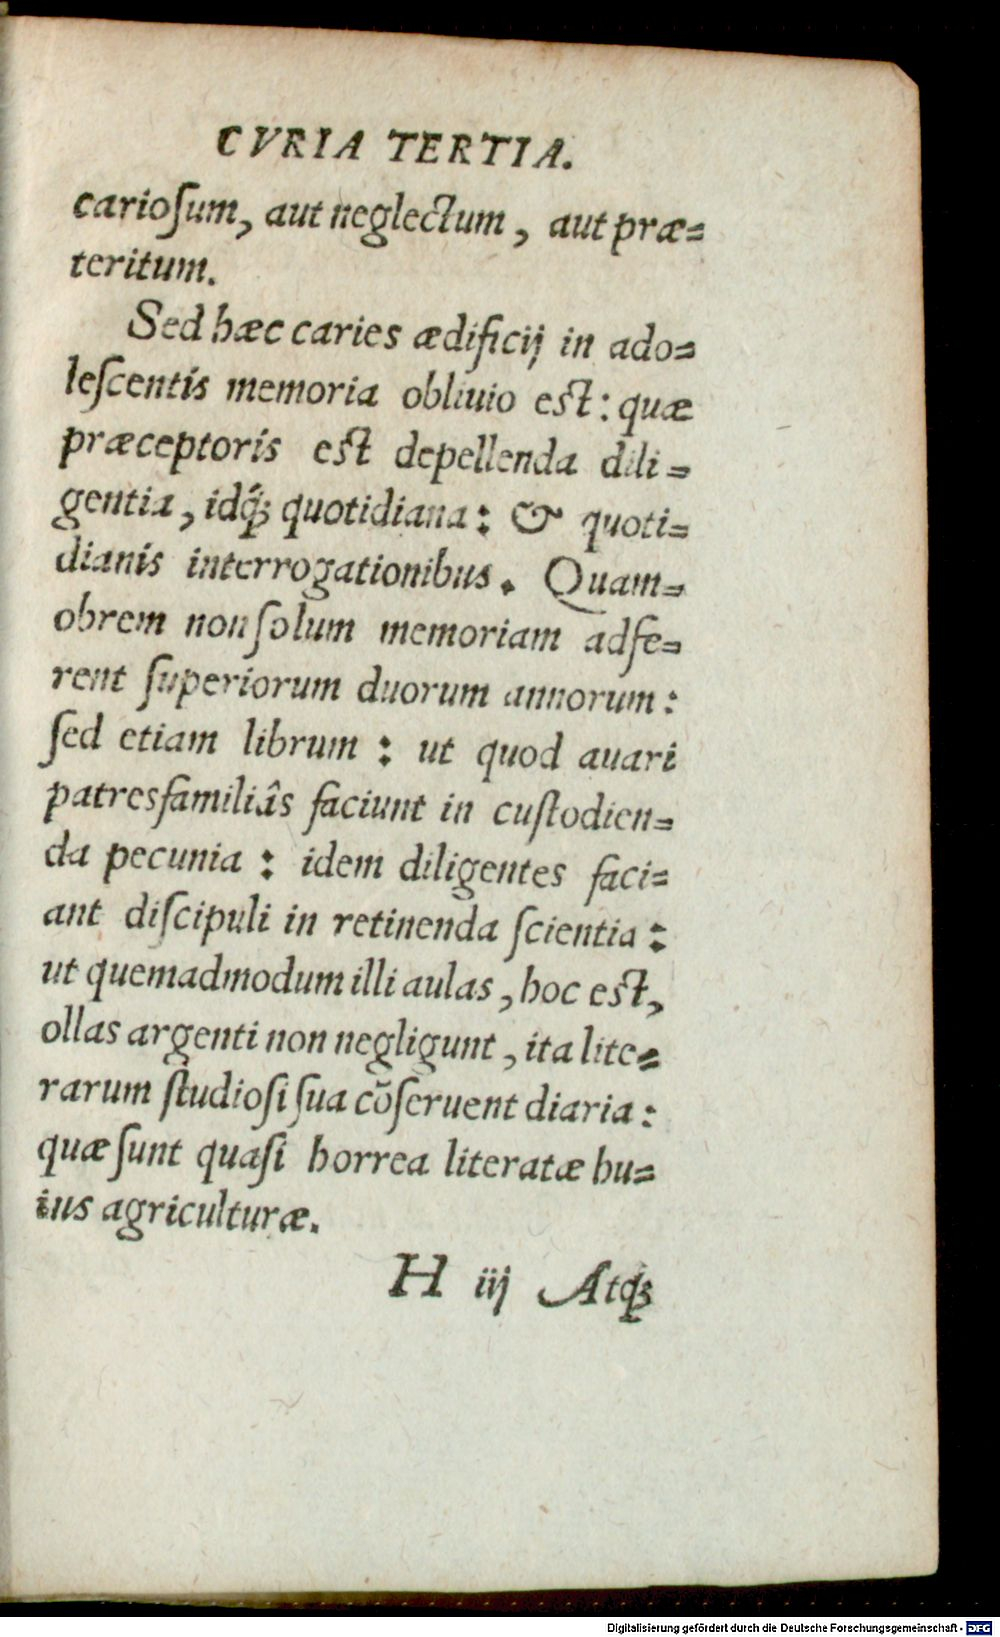 CVRIA TERTIA.
cariosum, aut neglectum, aut præ=
teritum.
Sed hæc caries ædificij in ado=
lescentis memoria obliuio est: quæ
præceptoris est depellenda dili=
gentia, idq́; quotidiana: & quoti=
dianis interrogationibus. Quam=
obrem non solum memoriam adfe=
rent superiorum duorum annorum:
sed etiam librum: ut quod auari
patresfamiliâs faciunt in custodien=
da pecunia: idem diligentes faci=
ant discipuli in retinenda scientia:
ut quemadmodum illi aulas, hoc est,
ollas argenti non negligunt, ita lite=
rarum studiosi sua cōseruent diaria:
quæ sunt quasi horrea literatæ hu=
ius agriculturæ.
H iij Atq;
Digitalisierung gefördert durch die Deutsche Forschungsgemeinschaft - DFG